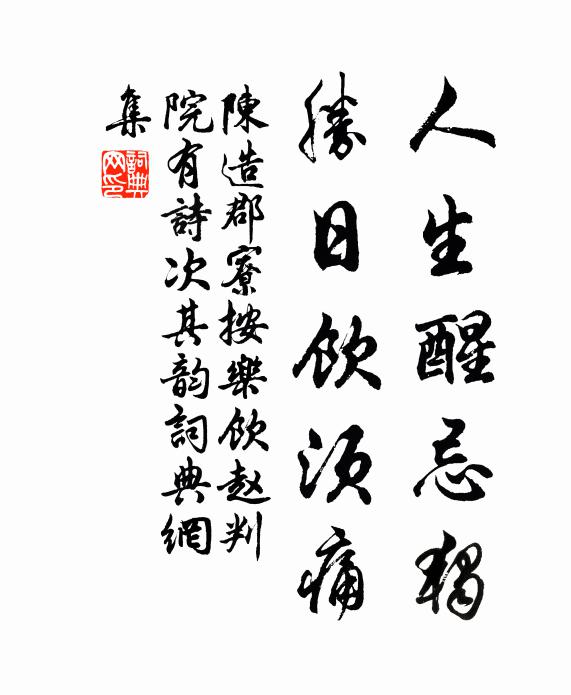 人生醒忌獨
勝日飲須痛
陳造郡寮按樂飲赵判
院有詩次其韵詞典網
集
詞典
网印